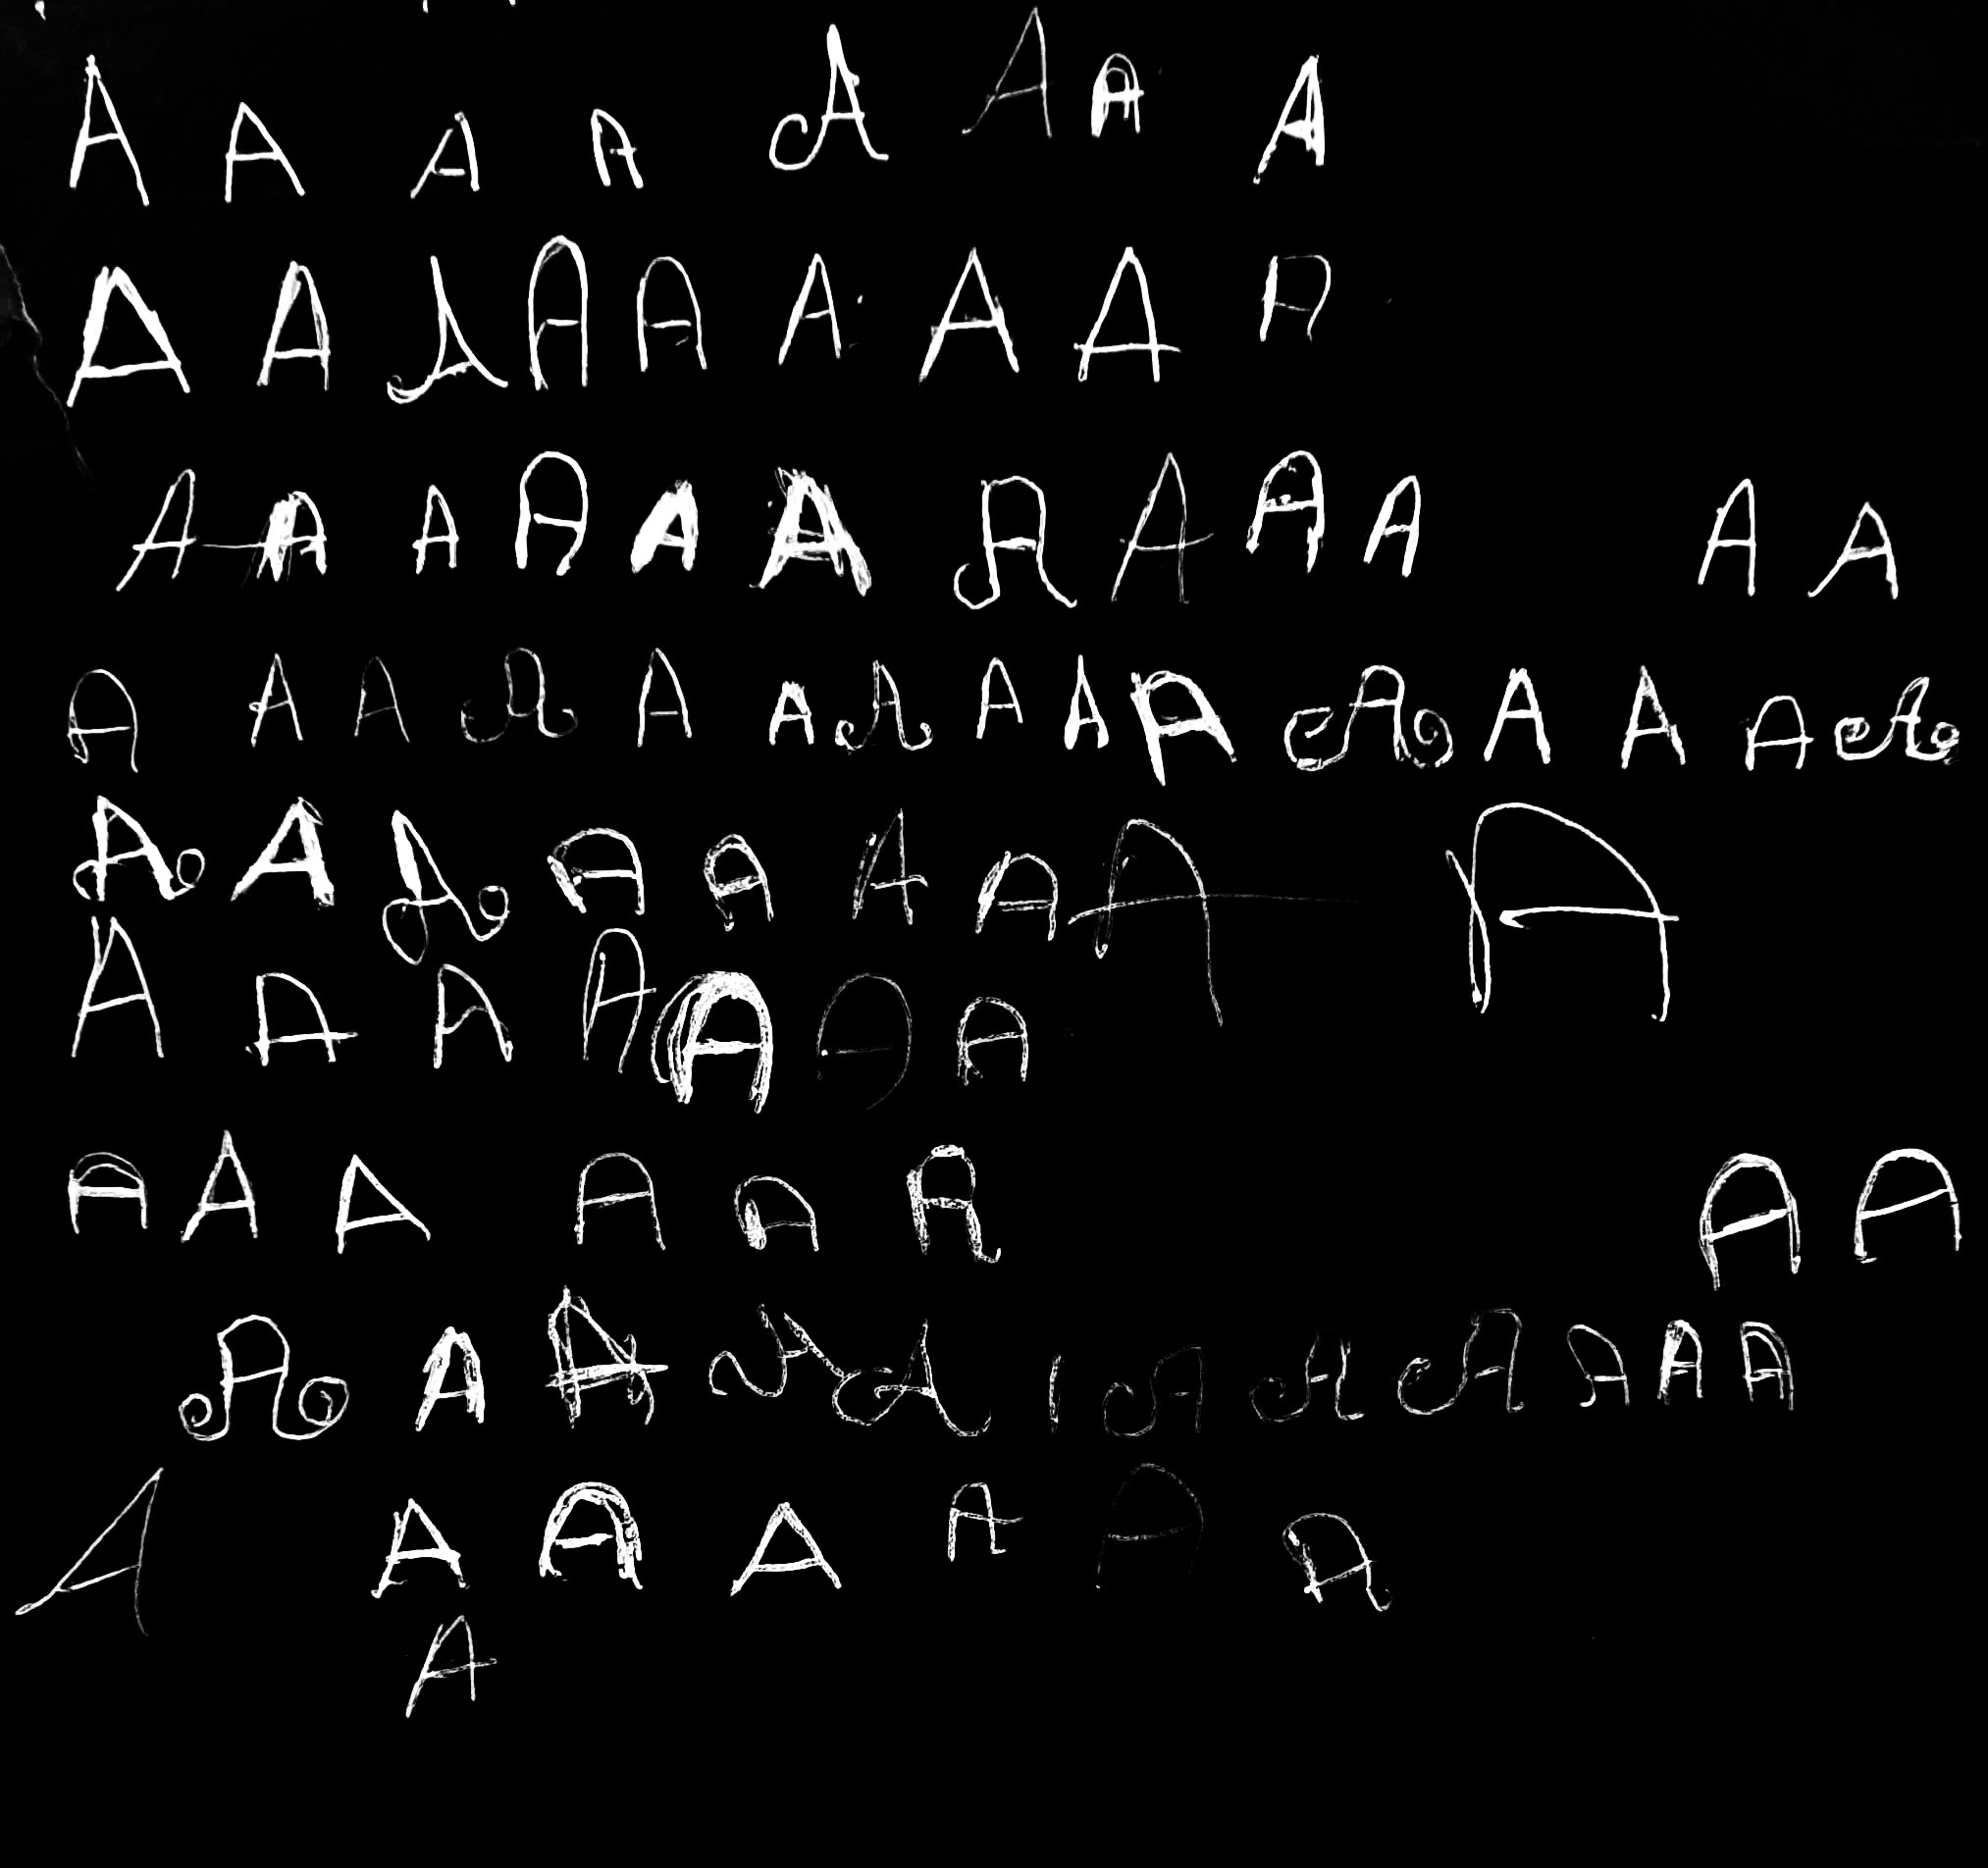 A A A A A A A A
A A A A A A A A A
A A A A A A A A A A A A
A A A A A A A A A A A A A A A
A A A A A A A A A
A A A A A A A
A A A A A A A A
A A A A A A A A A A A
A A A A A A A
A